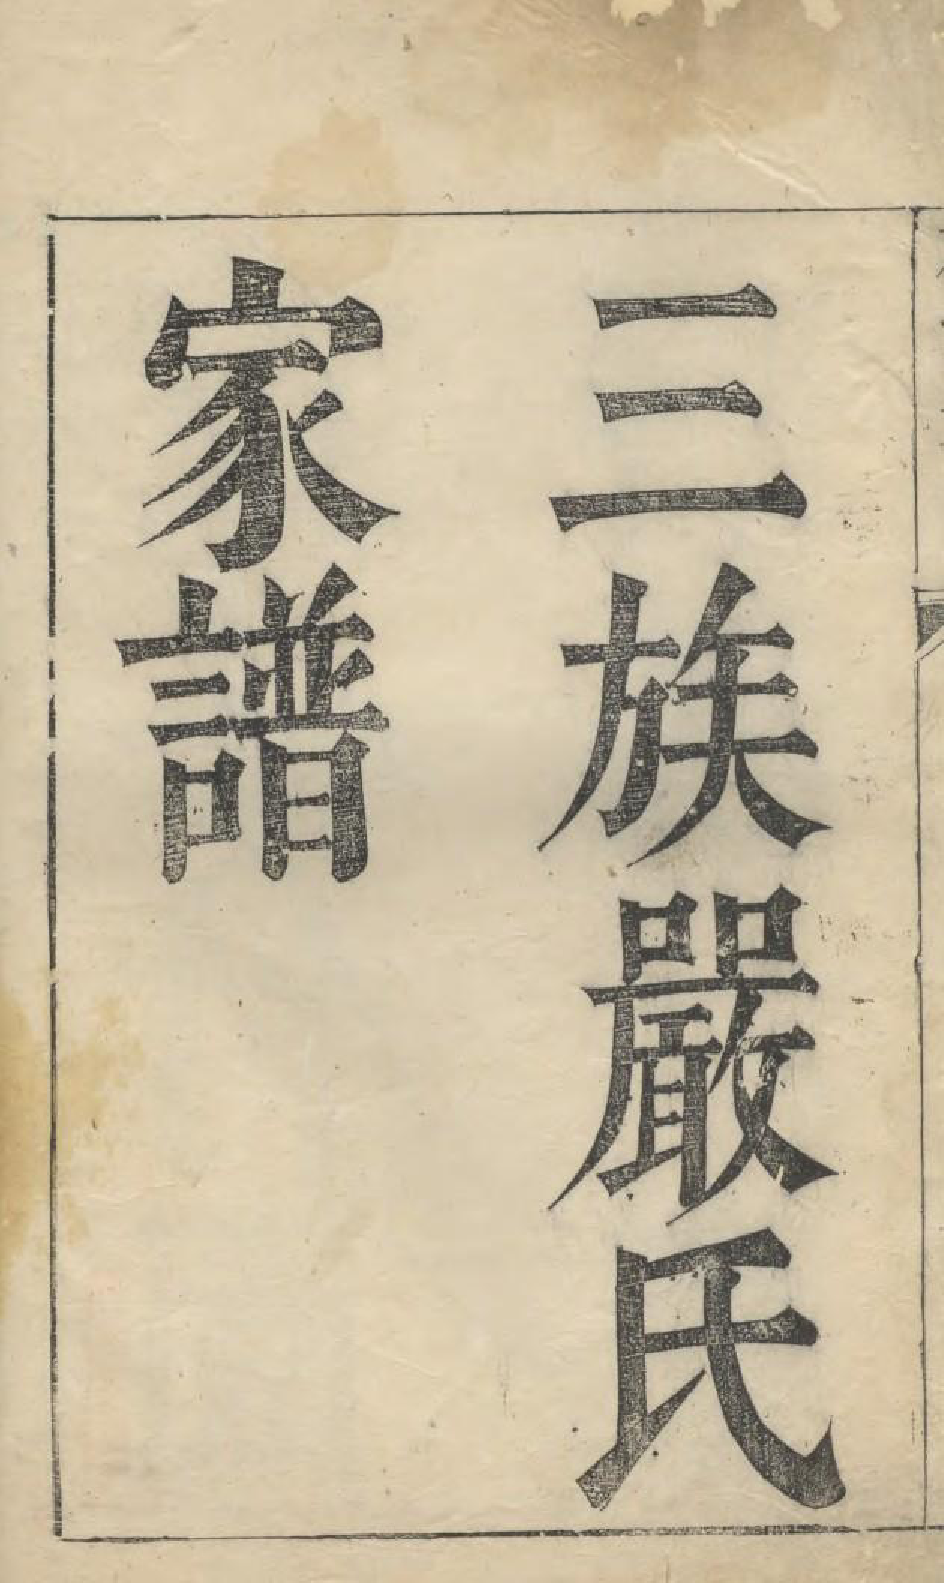 三族嚴氏
家譜